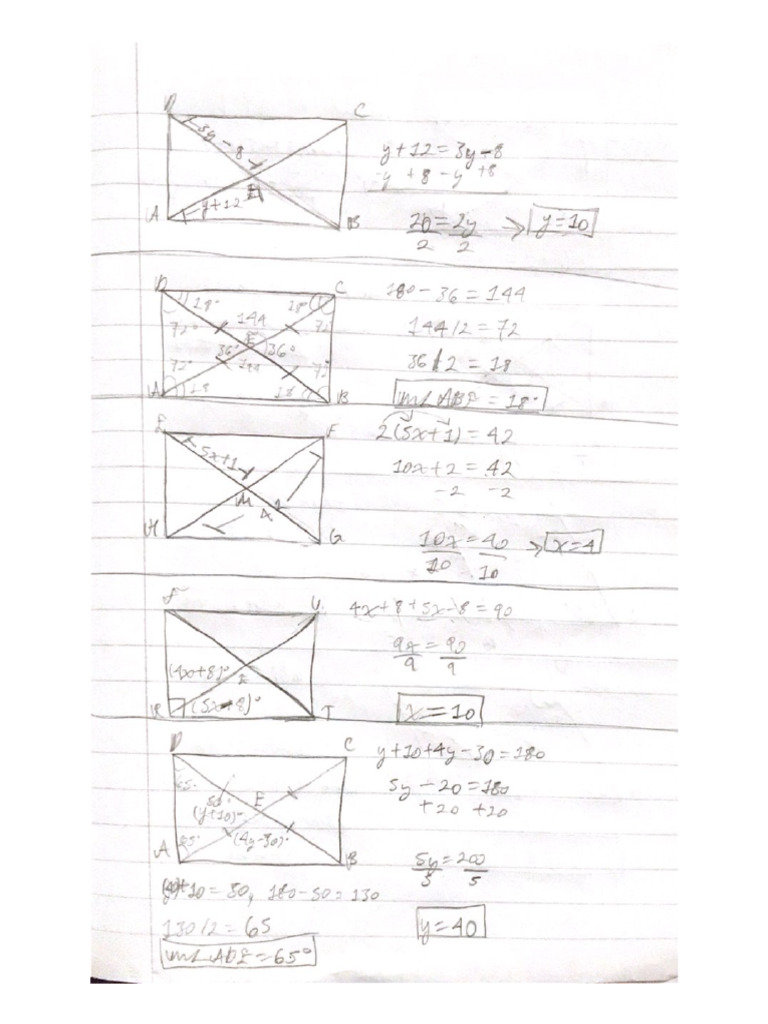 D C
3y-8
y+12=3y-8
-y +8 -y +8
E
y+12
A B
20=2y → y=10
2 2
D C
18° 18°
180-36=144
144
72° 72
144/2=72
E
36° 36°
72° 144 72
36/2=18
A 18 18 B
m∠ABE=18°
E F
5x+1
2(5x+1)=42
10x+2=42
-2 -2
M
42
H G
10x=40 → x=4
10 10
U
4x+8+5x-8=90
9x=90
9 9
(4x+8)°
E
(5x-8)°
R T
x=10
D C
y+10+4y-30=180
65°
5y-20=180
+20 +20
50°
E
(y+10)°
65° (4y-30)°
A B
5y=200
5 5
+10=50, 180-50=130
130/2=65
y=40
m∠ADE=65°